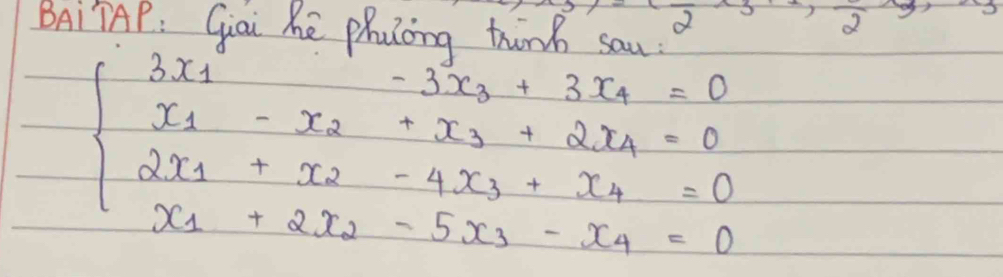 BÀI TẬP: Giải hệ phương trình sau:
3x1 - 3x3 + 3x4 = 0
x1 - x2 + x3 + 2x4 = 0
2x1 + x2 - 4x3 + x4 = 0
x1 + 2x2 - 5x3 - x4 = 0